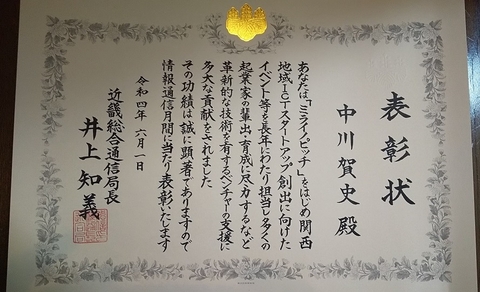 表彰状
中川賀史殿
あなたは、「ミライノピッチ」をはじめ関西
地域ICTスタートアップ創出に向けた
イベント等を長年にわたり担当し多くの
起業家の輩出・育成に尽力するなど
革新的な技術を有するベンチャーの支援に
多大な貢献をされました
その功績は誠に顕著でありますので
情報通信月間に当たり表彰いたします
令和四年六月一日
近畿総合通信局長
井上知義